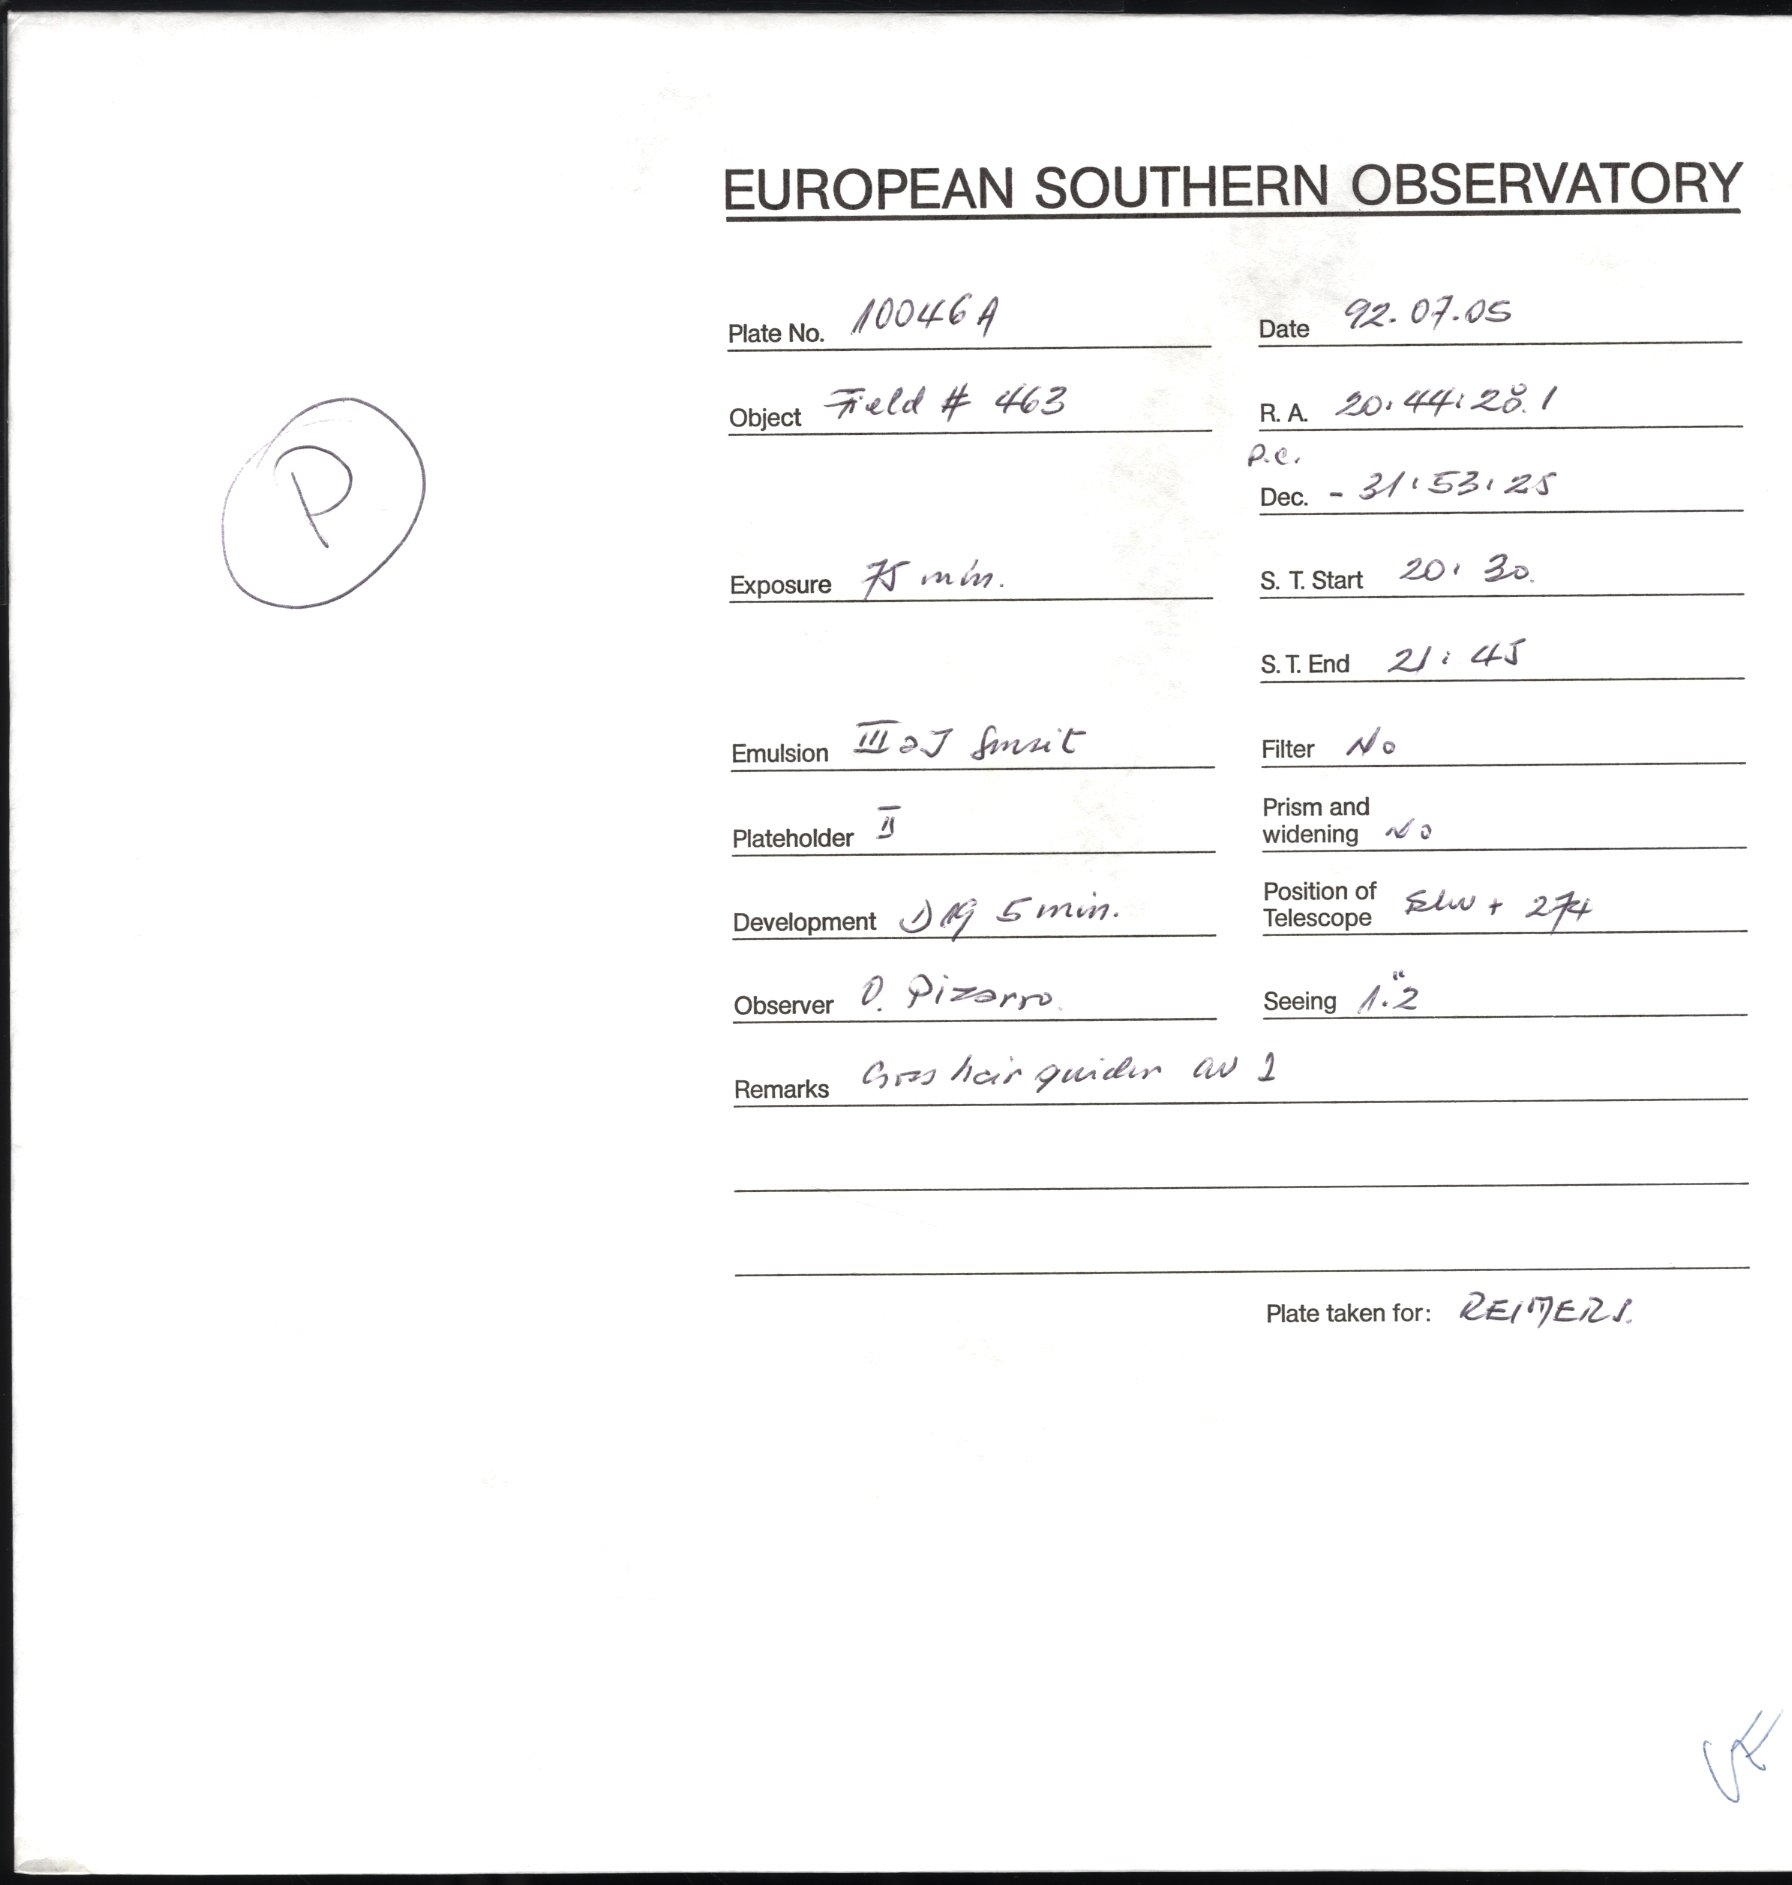 EUROPEAN SOUTHERN OBSERVATORY
Plate No. 10046A Date 92.07.05
Object Field # 463 R. A. 20:44:28.1
P
P.C.
Dec. - 31:53:25
Exposure 75 min. S. T. Start 20:30.
S. T. End 21:45
Emulsion III aJ Filter No
Plateholder II Prism and widening No
Development D19 5 min. Position of Telescope + 274
Observer O. Pizarro. Seeing 1."2
Remarks Cross hair guider 2
Plate taken for: REIMERS.